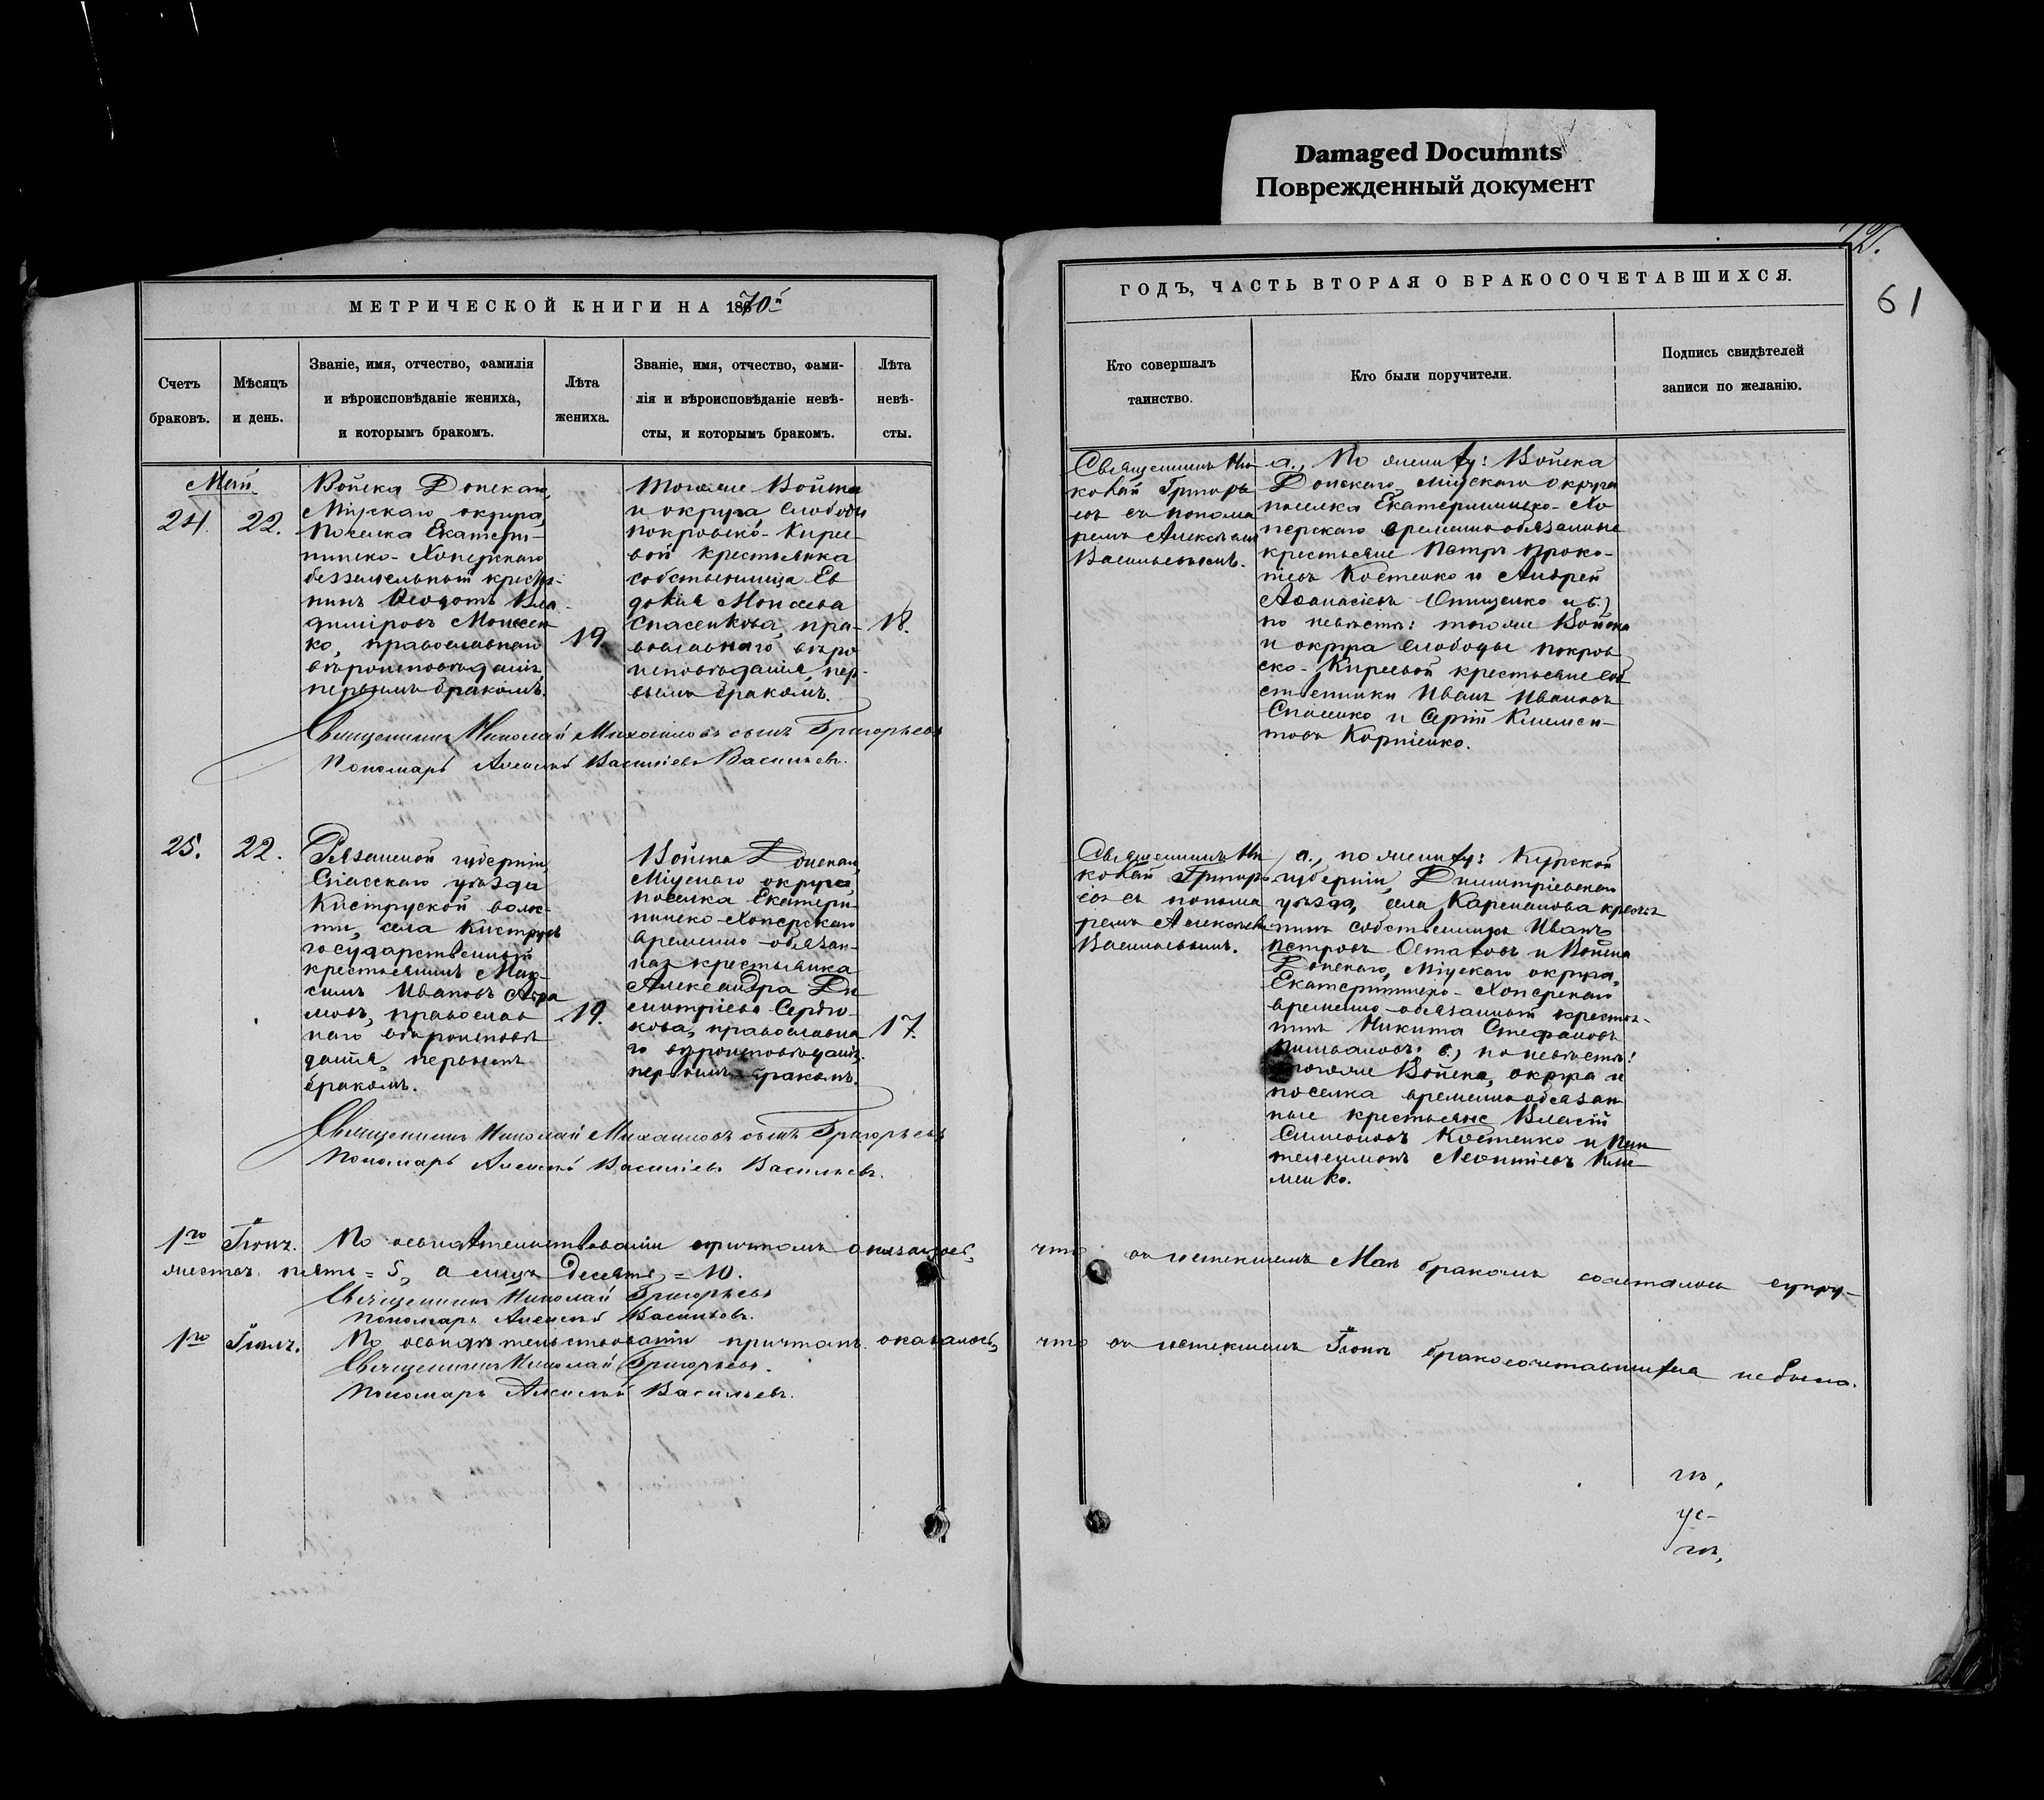 Damaged Documnts
Поврежденный документ
МЕТРИЧЕСКОЙ КНИГИ НА 1870й
Счетъ
браковъ.
Мѣсяцъ
и день.
Званіе, имя, отчество, фамилія
и вѣроисповѣданіе жениха,
и которымъ бракомъ.
Лѣта
жениха.
Званіе, имя, отчество, фами-
лія и вѣроисповѣданіе невѣ-
сты, и которымъ бракомъ.
Лѣта
невѣ-
сты.
Май
24. 22.
Войска Донскаго,
Міускаго округа,
поселка Екатери-
нинско-Хоперскаго
безземельный крестья-
нинъ Ѳеодотъ Вла-
диміровъ Моисеен-
ко, православнаго
вѣроисповѣданія,
первымъ бракомъ.
19.
тогоже Войска
и округа слободы
покровско-Кирее-
вой крестьянка
собственница Ев
докія Моисеева
Спасенкова, пра-
вославнаго вѣро
исповѣданія, пер-
вымъ бракомъ.
18.
Священникъ Николай Михаиловъ сынъ Григорьевъ
Пономарь Алексѣй Василіевъ Васильевъ.
25. 22.
Рязанской губерніи,
Спасскаго уѣзда
Киструсской волос-
ти, села Киструсъ
государственный
крестьянинъ Мак-
симъ Ивановъ Абра
мовъ, православ
наго вѣроисповѣ
данія, первымъ
бракомъ.
19.
Войска Донскаго,
Міускаго округа,
поселка Екатери-
нинско-Хоперскаго
временно-обязан-
ная крестьянка
Александра Ди
митріева Сердю-
кова, православна
го вѣроисповѣданія,
первымъ бракомъ.
17.
Священникъ Николай Михаиловъ сынъ Григорьевъ
Пономарь Алексѣй Василіевъ Васильевъ.
1го Іюня. По освидѣтельствованіи причтомъ оказалось,
жествъ пять = 5, а лицъ десять = 10.
Священникъ Николай Григорьевъ
Пономарь Алексѣй Васильевъ.
1го По освидѣтельствованіи причтомъ оказалось,
Священникъ Николай Григорьевъ.
Пономарь Алексѣй Васильевъ.
12.
61
ГОДЪ, ЧАСТЬ ВТОРАЯ О БРАКОСОЧЕТАВШИХСЯ.
Кто совершалъ
таинство.
Кто были поручители.
Подпись свидѣтелей
записи по желанію.
Священникъ Ни
колай Григорь
евъ съ понома
ремъ Алексѣемъ
Васильевымъ.
а., По жениху: Войска
Донскаго Міускаго округа
поселка Екатерининско-Хо
перскаго временно-обязанные
крестьяне Петръ Проко-
піевъ Костенко и Андрей
Аѳанасіевъ Онищенко и б.)
по невѣстѣ: тогоже Войска
и округа слободы покров
ско-Киреевой крестьяне соб
ственники Иванъ Ивановъ
Спасенко и Сергій Климен-
товъ Корніенко.
Священникъ Ни
колай Григорь
евъ съ понома
ремъ Алексѣемъ
Васильевымъ.
а., по жениху: Курской
губерніи, Димитріевскаго
уѣзда, села Карманова крестья
нинъ собственникъ Иванъ
Петровъ и Войска
Донскаго, Міускаго округа,
Екатерининско-Хоперскаго
временно-обязанный крестья-
нинъ Никита Стефановъ
б.) по невѣстѣ:
тогоже Войска, округа и
поселка временно-обязан
ные крестьяне Власій
Симеоновъ Костенко и Пан
телеимонъ Леонтіевъ Кли-
менко.
что въ истекшемъ Маѣ бракомъ сочеталось супру-
что въ истекшемъ Іюнѣ бракосочетавшихся небыло.
ус-